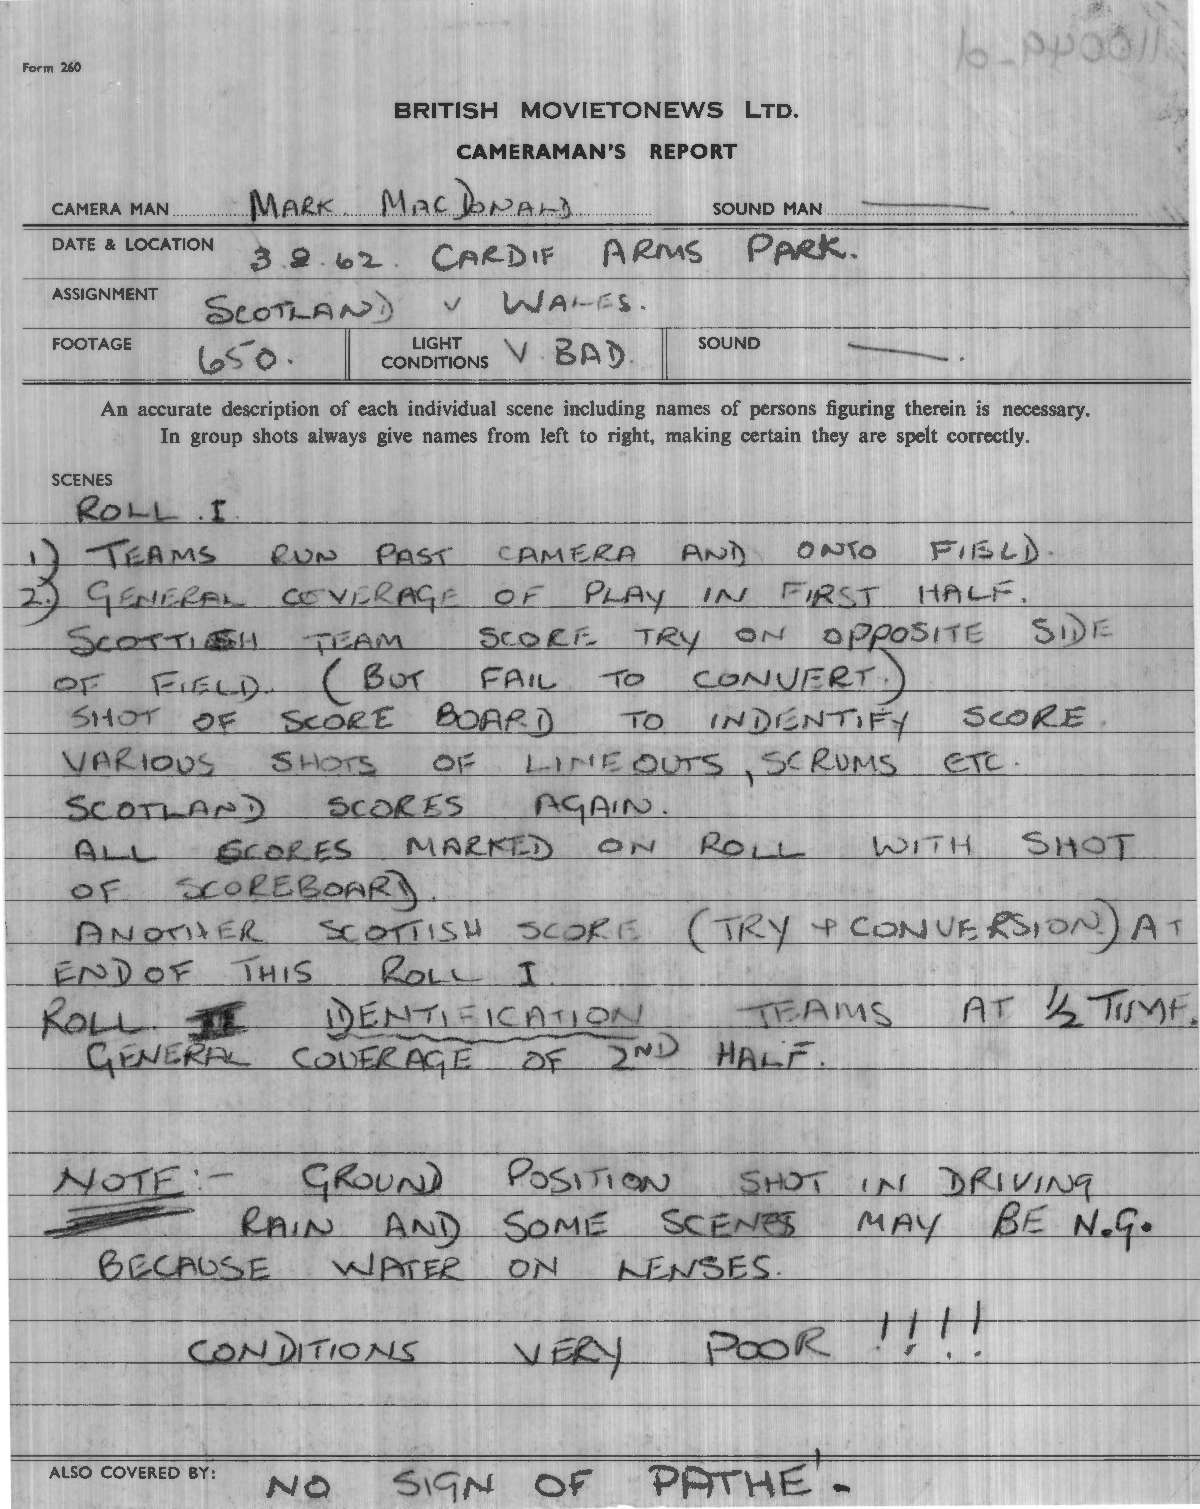 Form 260
BRITISH MOVIETONEWS LTD.
CAMERAMAN'S REPORT
CAMERA MAN MARK MACDONALD SOUND MAN
DATE & LOCATION 3.2.62. CARDIF ARMS PARK.
ASSIGNMENT SCOTLAND V WALES.
FOOTAGE 650. LIGHT CONDITIONS V. BAD. SOUND
An accurate description of each individual scene including names of persons figuring therein is necessary.
In group shots always give names from left to right, making certain they are spelt correctly.
SCENES
ROLL . I.
1) TEAMS RUN PAST CAMERA AND ONTO FIELD.
2.) GENERAL COVERAGE OF PLAY IN FIRST HALF.
SCOTTISH TEAM SCORE TRY ON OPPOSITE SIDE
OF FIELD. (BUT FAIL TO CONVERT.)
SHOT OF SCORE BOARD TO INDENTIFY SCORE.
VARIOUS SHOTS OF LINEOUTS, SCRUMS ETC.
SCOTLAND SCORES AGAIN.
ALL SCORES MARKED ON ROLL WITH SHOT
OF SCOREBOARD.
ANOTHER SCOTTISH SCORE (TRY + CONVERSION) AT
END OF THIS ROLL I.
ROLL. II IDENTIFICATION TEAMS AT ½ TIME.
GENERAL COVERAGE OF 2ND HALF.
NOTE:- GROUND POSITION SHOT IN DRIVING
RAIN AND SOME SCENES MAY BE N.G.
BECAUSE WATER ON LENSES.
CONDITIONS VERY POOR !!!!
ALSO COVERED BY: NO SIGN OF PATHE' -